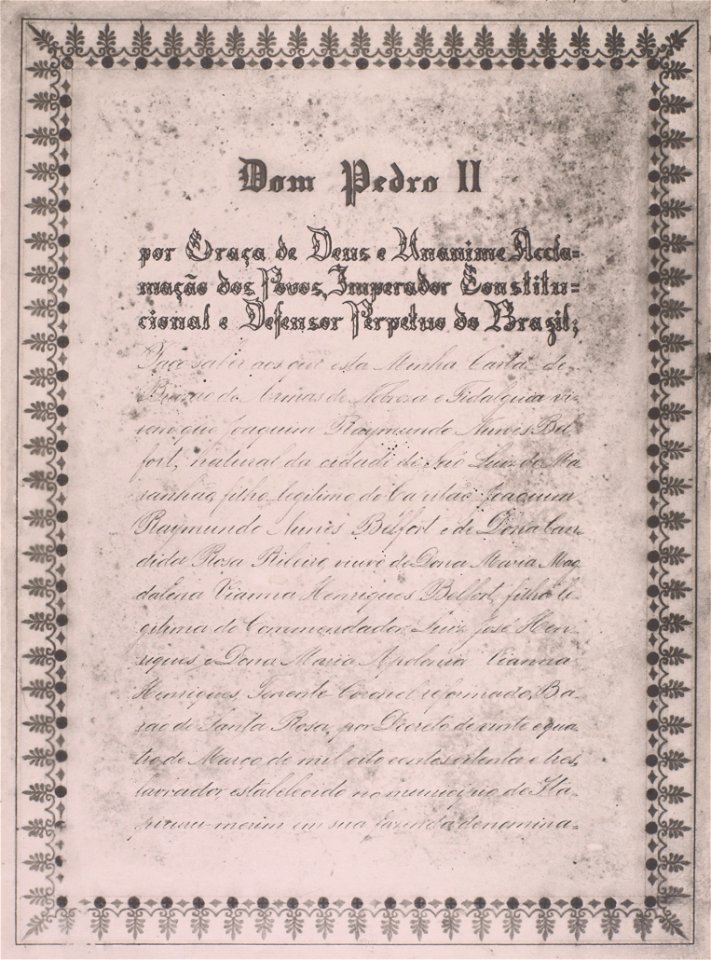 Dom Pedro II
por Graça de Deus e Unanime Accla=
mação dos Povos, Imperador Constitu=
cional e Defensor Perpetuo do Brazil;
Faço saber aos que esta Minha Carta de
Brazão de Armas de Nobreza e Fidalguia vi-
rem que Joaquim Raymundo Nunes Bel-
fort, natural da cidade de São Luiz do Ma-
ranhão, filho legitimo do Capitão Joaquim
Raymundo Nunes Belfort e de Dona Can-
dida Rosa Ribeiro, viuvo de Dona Maria Mag-
dalena Vianna Henriques Belfort, filha le-
gitima do Commendador Luiz José Hen-
riques e Dona Maria Apolonia Vianna
Henriques, Tenente Coronel reformado, Ba-
rão de Santa Rosa, por Decreto de vinte e qua-
tro de Março de mil oito centos oitenta e tres,
lavrador, estabelecido no municipio de Ita-
mirim em sua fazenda denomina-